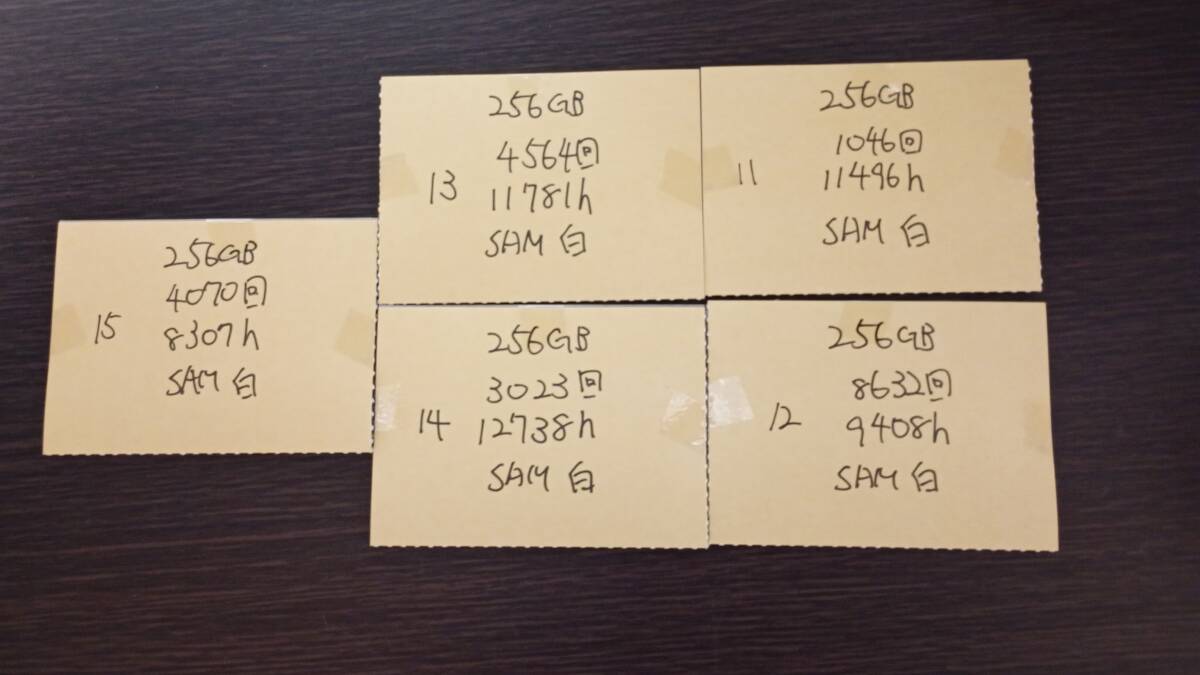 256GB
4564回
13 11781h
SAM 白
256GB
1046回
11 11496h
SAM 白
256GB
4070回
15 8307h
SAM 白
256GB
3023回
14 12738h
SAM 白
256GB
8632回
12 9408h
SAM 白